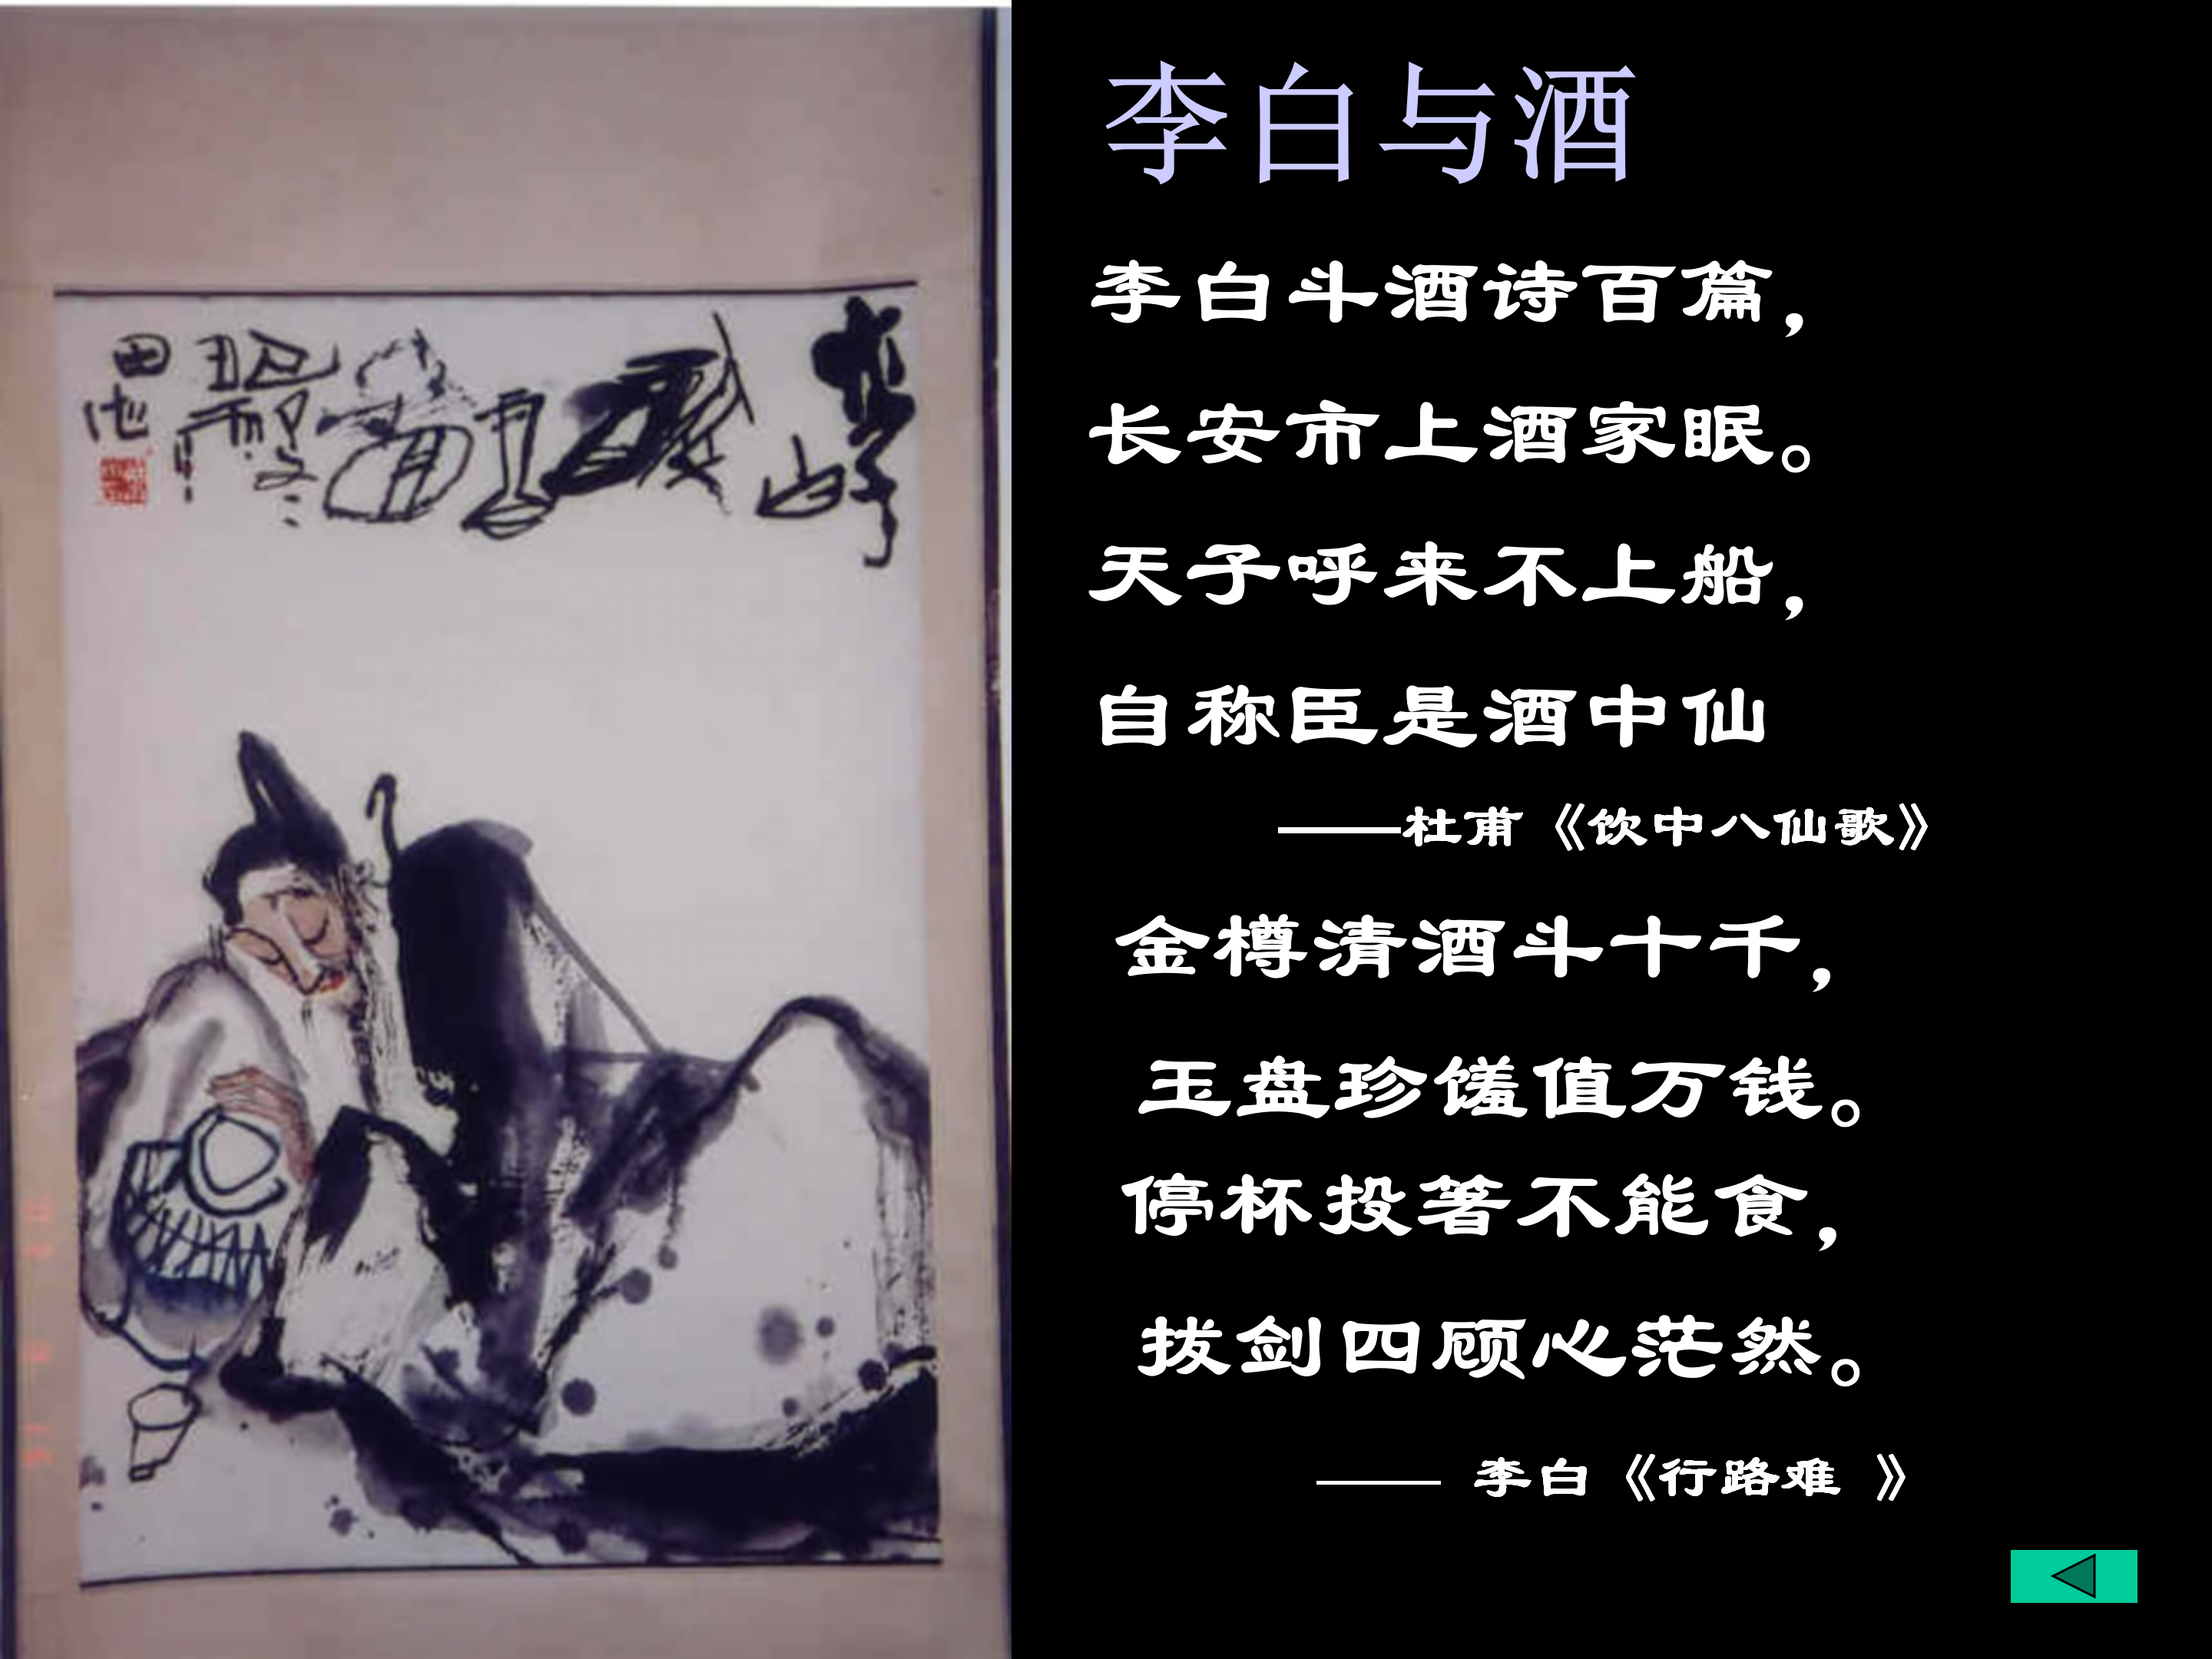 李白与酒
李白斗酒诗百篇，
长安市上酒家眠。
天子呼来不上船，
自称臣是酒中仙
——杜甫《饮中八仙歌》
金樽清酒斗十千，
玉盘珍馐值万钱。
停杯投箸不能食，
拔剑四顾心茫然。
—— 李白《行路难 》